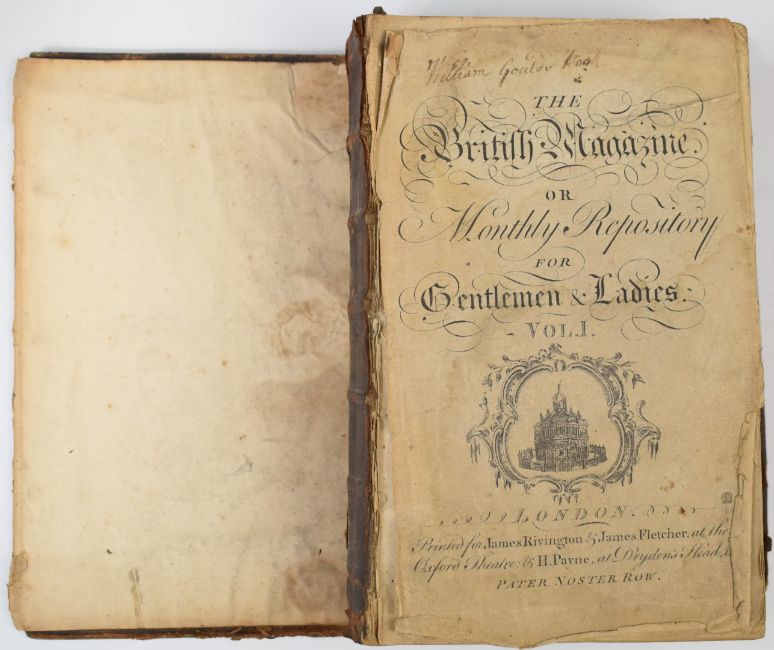 William Goulds
THE
Britiſh Magazine.
OR
Monthly Repository
FOR
Gentlemen & Ladies:
VOL.I.
LONDON.
Printed for James Rivington & James Fletcher, at the
Oxford Theatre; & H. Payne, at Dryden's Head,
PATER NOSTER ROW.